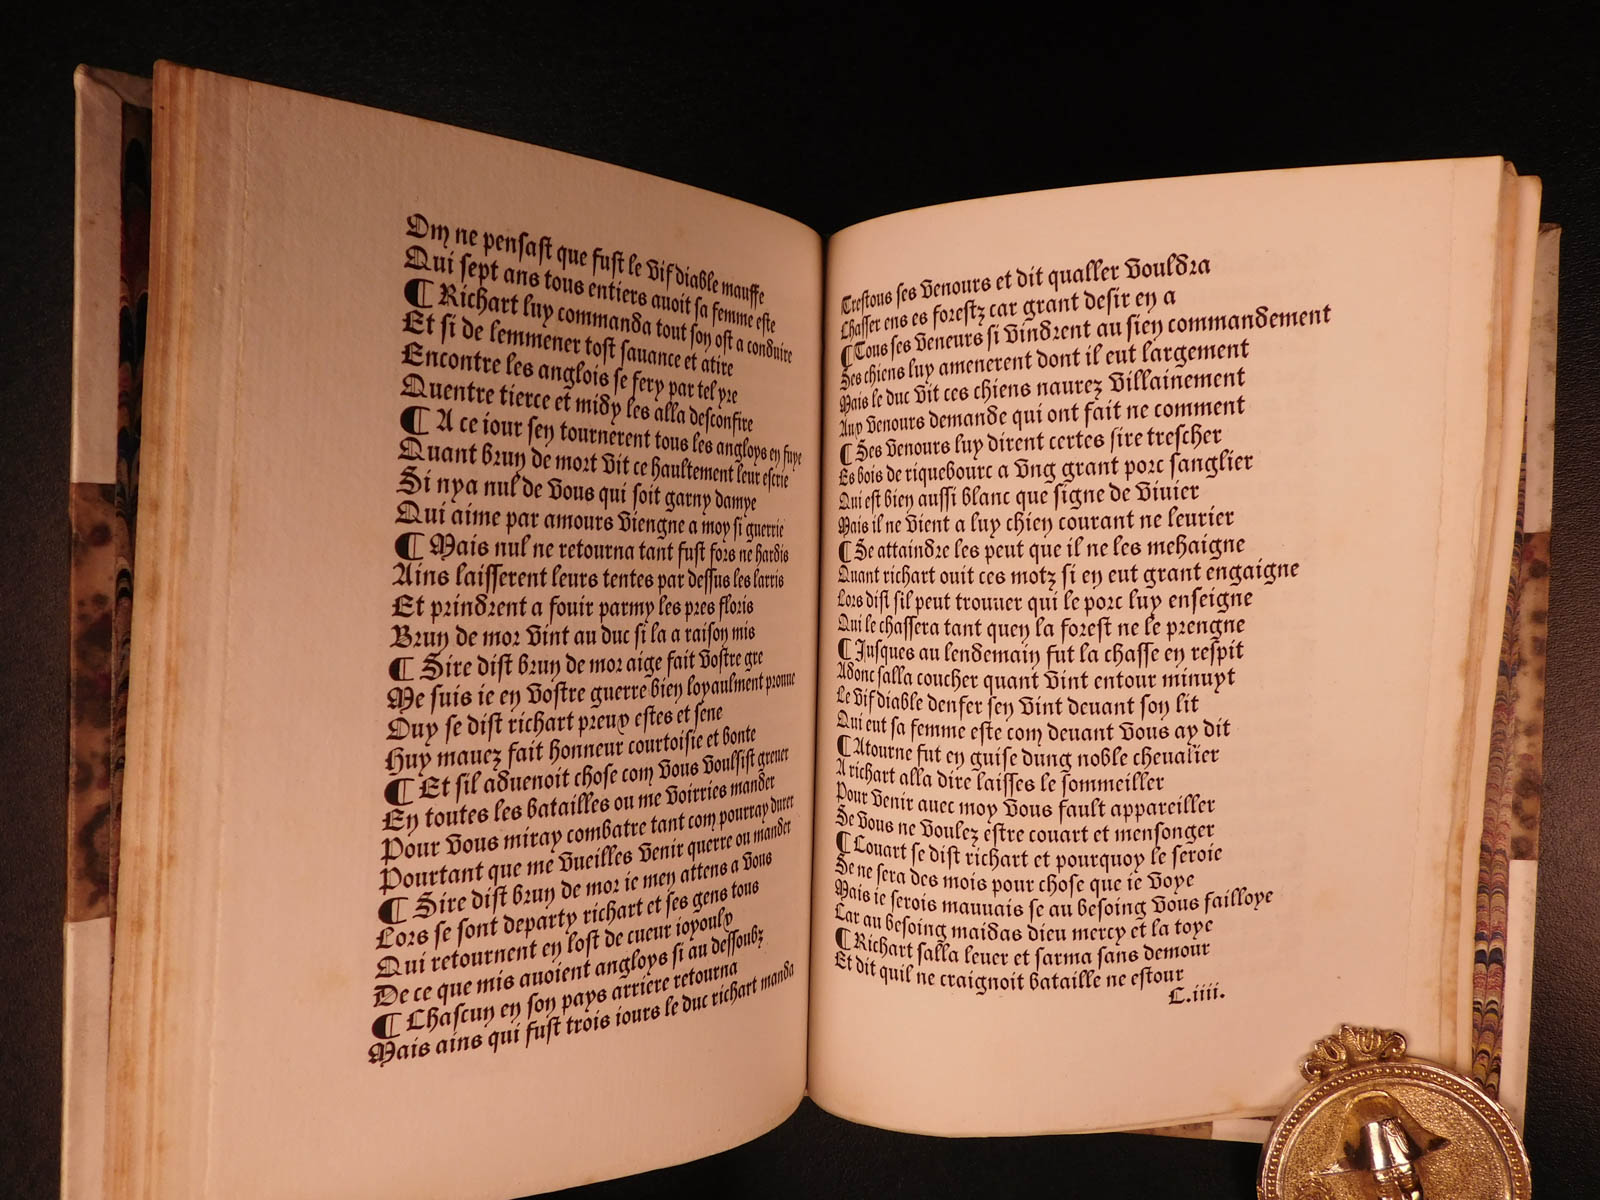 Om ne pensast que fust le vif diable mauffe
Qui sept ans tous entiers auoit sa femme este
¶ Richart luy commanda tout son ost a conduire
Et si de lemmener tost sauance et atire
Encontre les anglois se fery par tel yre
Quentre tierce et midy les alla desconfire
¶ A ce iour sen tournerent tous les angloys en fuye
Quant brun de mort vit ce haultement leur escrie
Si nya nul de vous qui soit garny damye
Qui aime par amours viengne a moy si guerrie
¶ Mais nul ne retourna tant fust fors ne hardis
Ains laisserent leurs tentes par dessus les larris
Et prindrent a fouir parmy les pres floris
Brun de mor vint au duc si la a raison mis
¶ Sire dist brun de mor aige fait vostre gre
Me suis ie en vostre guerre bien loyaulment prouue
Ouy se dist richart preux estes et sene
Huy mauez fait honneur courtoisie et bonte
¶ Et sil aduenoit chose com vous voulsist greuer
En toutes les batailles ou me voirries mander
Pour vous miray combatre tant com pourray durer
Pourtant que me vueilles venir querre ou mander
¶ Sire dist brun de mor ie men attens a vous
Lors se sont departy richart et ses gens tous
Qui retournent en lost de cueur ioyoulx
De ce que mis auoient angloys si au dessoubz
¶ Chascun en son pays arriere retourna
Mais ains qui fust trois iours le duc richart manda
Trestous ses venours et dit qualler vouldra
Chasser ens es forestz car grant desir en a
¶ Tous ses veneurs si vindrent au sien commandement
Ses chiens luy amenerent dont il eut largement
Mais le duc vit ces chiens naurez villainement
Aux venours demande qui ont fait ne comment
¶ Ses venours luy dirent certes sire trescher
Es bois de riquebourc a vng grant porc sanglier
Qui est bien aussi blanc que signe de viuier
Mais il ne vient a luy chien courant ne leurier
¶ Se attaindre les peut que il ne les mehaigne
Quant richart ouit ces motz si en eut grant engaigne
Lors dist sil peut trouuer qui le porc luy enseigne
Qui le chassera tant quen la forest ne le prengne
¶ Jusques au lendemain fut la chasse en respit
Adonc salla coucher quant vint entour minuyt
Le vif diable denfer sen vint deuant son lit
Qui eut sa femme este com deuant vous ay dit
¶ Atourne fut en guise dung noble cheualier
A richart alla dire laisses le sommeiller
Pour venir auec moy vous fault appareiller
Se vous ne voulez estre couart et mensonger
¶ Couart se dist richart et pourquoy le seroie
Se ne sera des mois pour chose que ie voye
Mais ie serois mauuais se au besoing vous failloye
Car au besoing maidas dieu mercy et la toye
¶ Richart salla leuer et sarma sans demour
Et dit quil ne craignoit bataille ne estour
C.iiii.